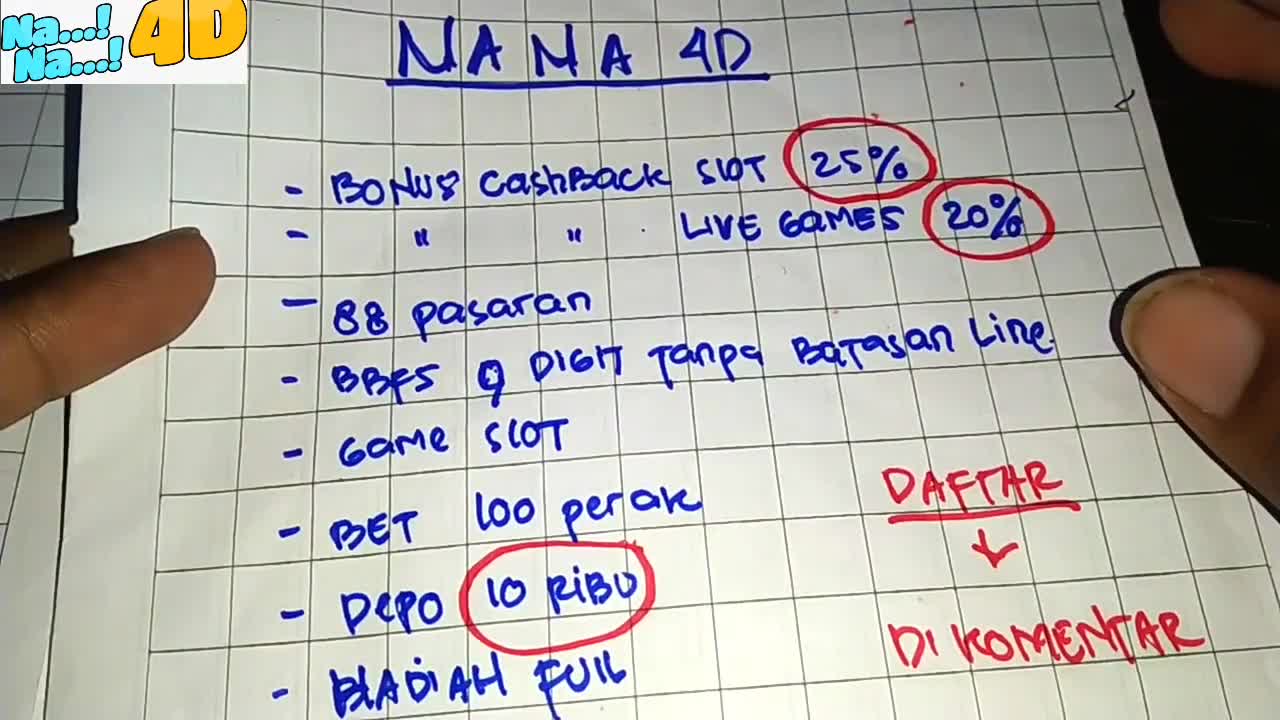 Na...! Na...! 4D
NANA 4D
- BONUS CASHBACK SLOT 25%
- " " LIVE GAMES 20%
- 88 pasaran
- BBFS 9 DIGIT Tanpa BATASAN Line.
- Game SLOT
- BET 100 perak
- DEPO 10 RIBU
- HADIAH FULL
DAFTAR
DI KOMENTAR